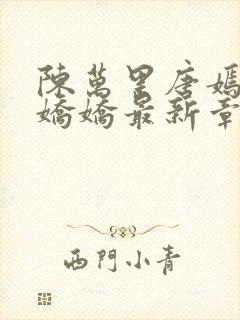 陳萬里唐嫣
嬌嬌最新章
西門小青